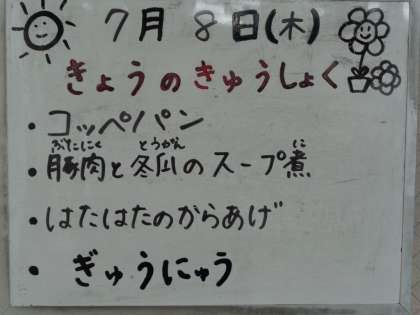 7月8日(木)
きょうのきゅうしょく
・コッペパン
ぶたにく とうがん に
・豚肉と冬瓜のスープ煮
・はたはたのからあげ
・ぎゅうにゅう